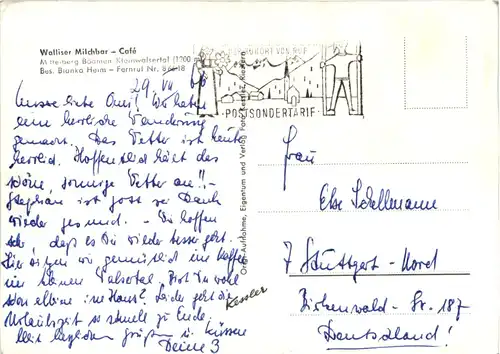 Walliser Milchbar – Café
Mittelberg Bödmen Kleinwalsertal (1200 m)
Bes. Bianka Heim – Fernruf Nr.
KURORT VON RUF
POSTSONDERTARIF
29. VII 66
Unsere liebe Omi! Wir haben
eine herrliche Wanderung
gemacht. Das Wetter ist heute
herrlich. Hoffentlich hält das
schöne, sonnige Wetter an!! –
Stephan ist gott sei Dank
wieder gesund. – Wir hoffen
sehr, dass es Dir wieder besser geht.
Hier sitzen wir gemütlich im Kaffee
im schönen Walsertal. Bist Du wohl
schon alleine im Haus? Leider geht die
Urlaubszeit so schnell zu Ende.
Mit herzlichen Grüßen u. Küssen
Deine 3
Kessler
Frau
Else Schellmann
7 Stuttgart-Nord
Birkenwald-Str. 187
Deutschland!